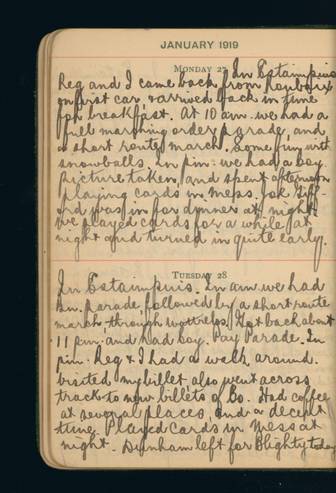 JANUARY 1919
MONDAY 27 In Estaimpuis
Reg and I came back from Roubaix
on first car & arrived back in time
for breakfast. At 10 am. we had a
full marching order parade, and
a short route march. Some fun with
snowballs. In pm. we had a Coy.
Picture taken, and spent afternoon
playing cards in mess. Joe Giff-
ord was in for dinner at night
We played cards for a while at
night and turned in quite early.
TUESDAY 28
In Estaimpuis. In am we had
Bn. parade followed by a short route
march, through Wattrelos. Got back about
11 pm. and had Coy. Pay Parade. In
pm. Reg & I had a walk around.
visited my billet also went across
track to new billets of Co. Had coffee
at several places, and a decent
time. Played cards in Mess at
night. Dunham left for Blighty today